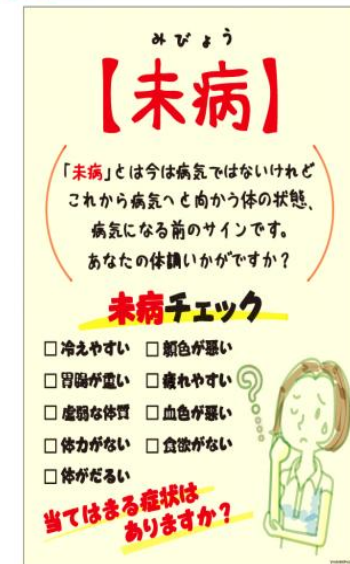 みびょう
【未病】
「未病」とは今は病気ではないけれど
これから病気へと向かう体の状態、
病気になる前のサインです。
あなたの体調いかがですか？
未病チェック
□冷えやすい □顔色が悪い
□胃腸が重い □疲れやすい
□虚弱な体質 □血色が悪い
□体力がない □食欲がない
□体がだるい
当てはまる症状は
ありますか？